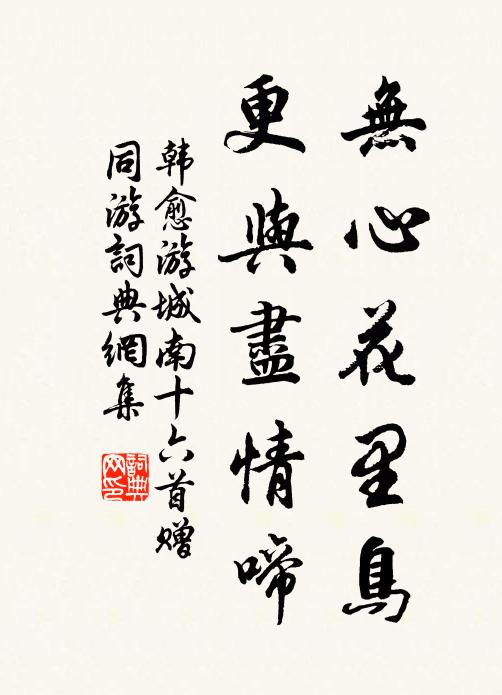 無心花里鳥
更與盡情啼
韩愈游城南十六首赠
同游詞典網集
詞典
网印